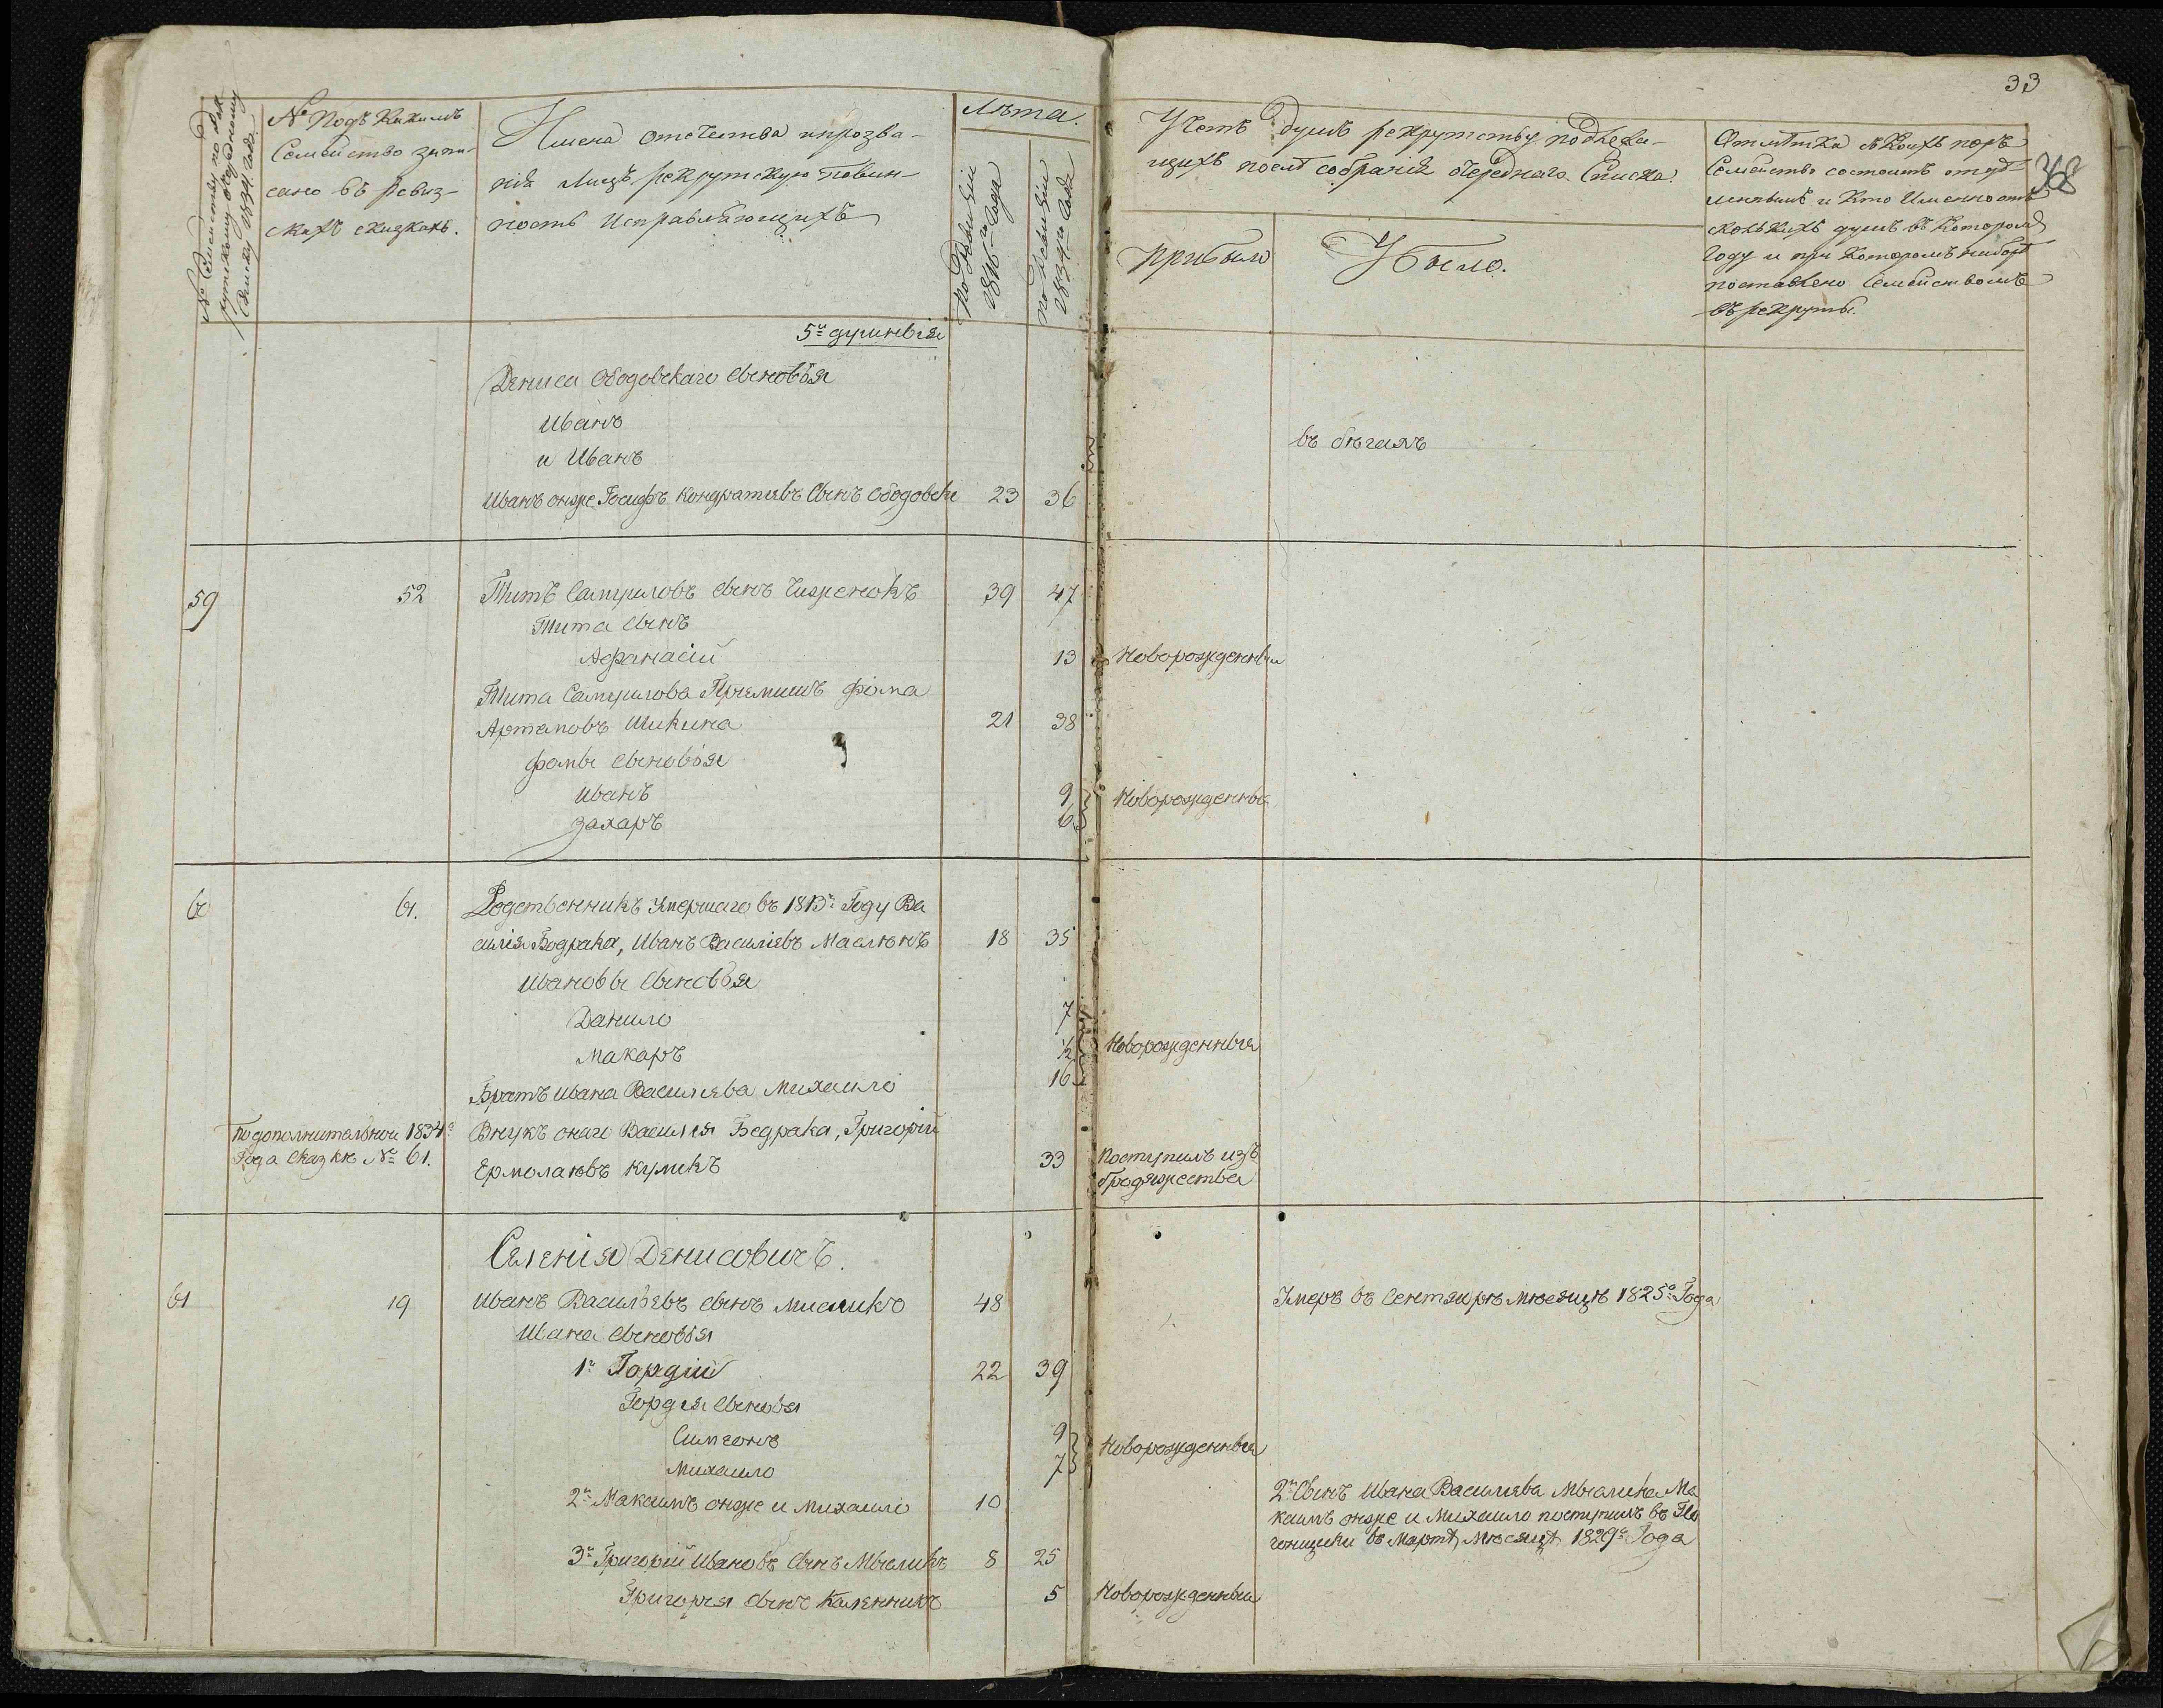 33
368
№ Семейству по рек-
рутскому очередному
списку 1834 года.
№ подъ какимъ
Семейство запи-
сано въ ревиз-
скихъ сказкахъ.
Имена отечества и прозва-
нія лицъ рекрутскую повин-
ность исправляющихъ
Лѣта.
по ревизіи
1816го года
по ревизіи
1834го года
Учетъ душъ рекрутству подлежа-
щихъ послѣ собранія очереднаго списка.
Прибыло
Убыло.
Отмѣтка съ коихъ поръ
Семейство состоитъ отдѣ-
и кто именно отъ
душъ въ которомъ
году и при которомъ наборѣ
поставлено Семействомъ
въ рекруты.
5и душнвія
Дениса Ободовскаго сыновья
Иванъ
и Иванъ
въ бѣгахъ
Иванъ онже Іосифъ Кондратіевъ сынъ Ободовске 23 36
59 52 Титъ Самуиловъ сынъ Чиженокъ 39 47
Тита сынъ
Афанасій 13 Новорожденныи
Тита Самуилова Пріемишъ Фома
Артамовъ Шикина 21 38
Фомы сыновья
Иванъ 9
Новорожденныя
Захаръ 6
60 61. Родственникъ умершаго въ 1813м Году Ва
силія Бедрака, Иванъ Василіевъ Маслюкъ 18 35
Ивановы сыновья
Данило 7
Макаръ ½ Новорожденныя
Братъ Ивана Василіева Михаило 16
По дополнительной 1834го Внукъ онаго Василія Бедрака, Григорій
Года сказкѣ № 61. Ермолаевъ Куликъ 33 Поступилъ изъ
бродяжества
Селенія Денисовичъ.
61 19 Иванъ Васильевъ сынъ Мысликъ 48 Умеръ въ Сентябрѣ мѣсяцѣ 1825го Года
Ивана сыновья
1й Гордій 22 39
Гордія сыновья
Симеонъ 9
Новорожденныя
Михаило 7
2й Максимъ онже и Михаило 10
2й сынъ Ивана Василіева Мыслика Ма
ксимъ онже и Михаило поступилъ въ По
гонщики въ Мартѣ мѣсяцѣ 1829го Года
3й Григорій Ивановъ сынъ Мысликъ 8 25
Григорія сынъ Каленникъ 5 Новорожденныи